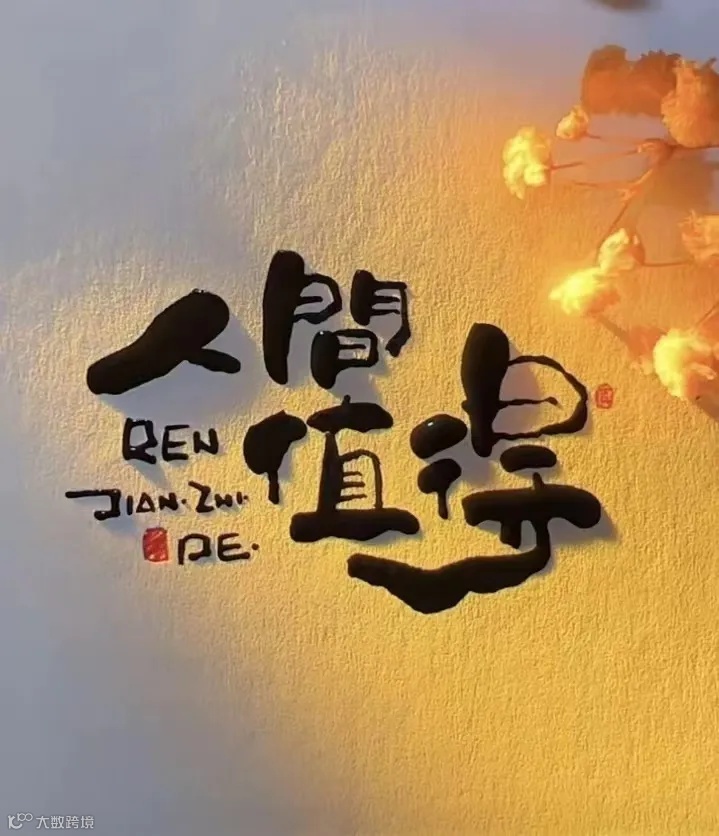 人間
值得
REN
JIAN·ZHI·
DE·
大数跨境